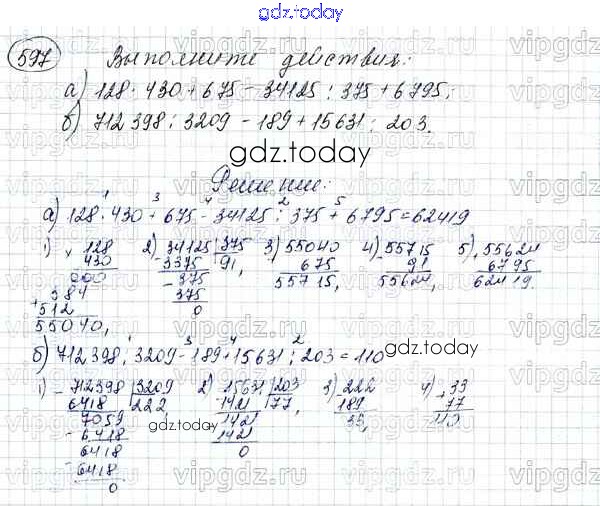 gdz.today
597 Выполните действия:
а) 128 · 430 + 675 - 34125 : 375 + 6795;
б) 712398 : 3209 - 189 + 15631 : 203.
gdz.today
Решение:
а) 128 · 430 + 675 - 34125 : 375 + 6795 = 62419
1) × 128
430
000
384
+ 512
55040,
2) 34125 | 375
- 3375 91,
- 375
375
0
3) 55040
675
55715,
4) - 55715
91
55624,
5) + 55624
6795
62419.
б) 712398 : 3209 - 189 + 15631 : 203 = 110
gdz.today
1) - 712398 | 3209
6418 222,
7059
- 6418
6418
- 6418
0
2) 15631 | 203
- 1421 77,
1421
1421
0
3) 222
189
33,
4) + 33
77
110
gdz.today